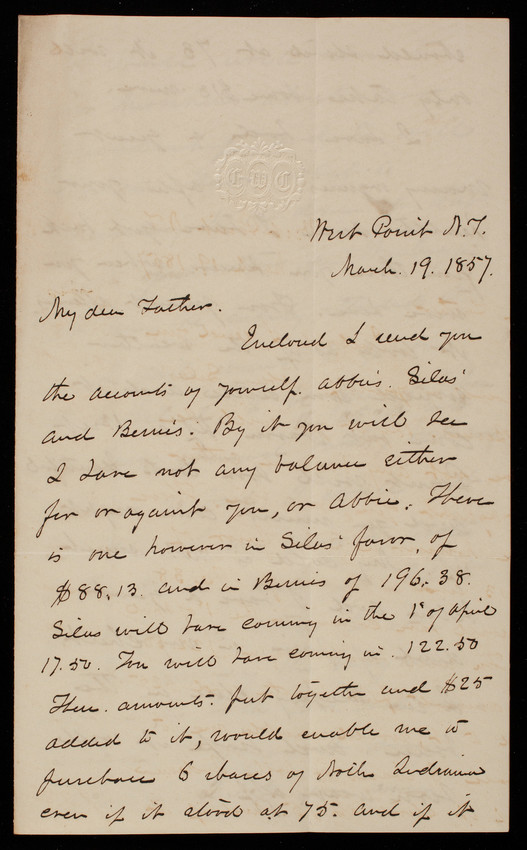 GWC
West Point N.Y.
March. 19. 1857.
My dear Father.
Enclosed I send you
the accounts of yourself. Abbie's. Silas'
and Bernie's. By it you will see
I have not any balance either
for or against you, or Abbie. There
is one however in Silas' favor, of
$88.13. and in Bernies of 196.38.
Silas will have coming in the 1st of April
17.50. You will have coming in. 122.50
These. amounts. put together and $25
added to it, would enable me to
purchase 6 shares of North Indiana
even if it stood at 75. and if it